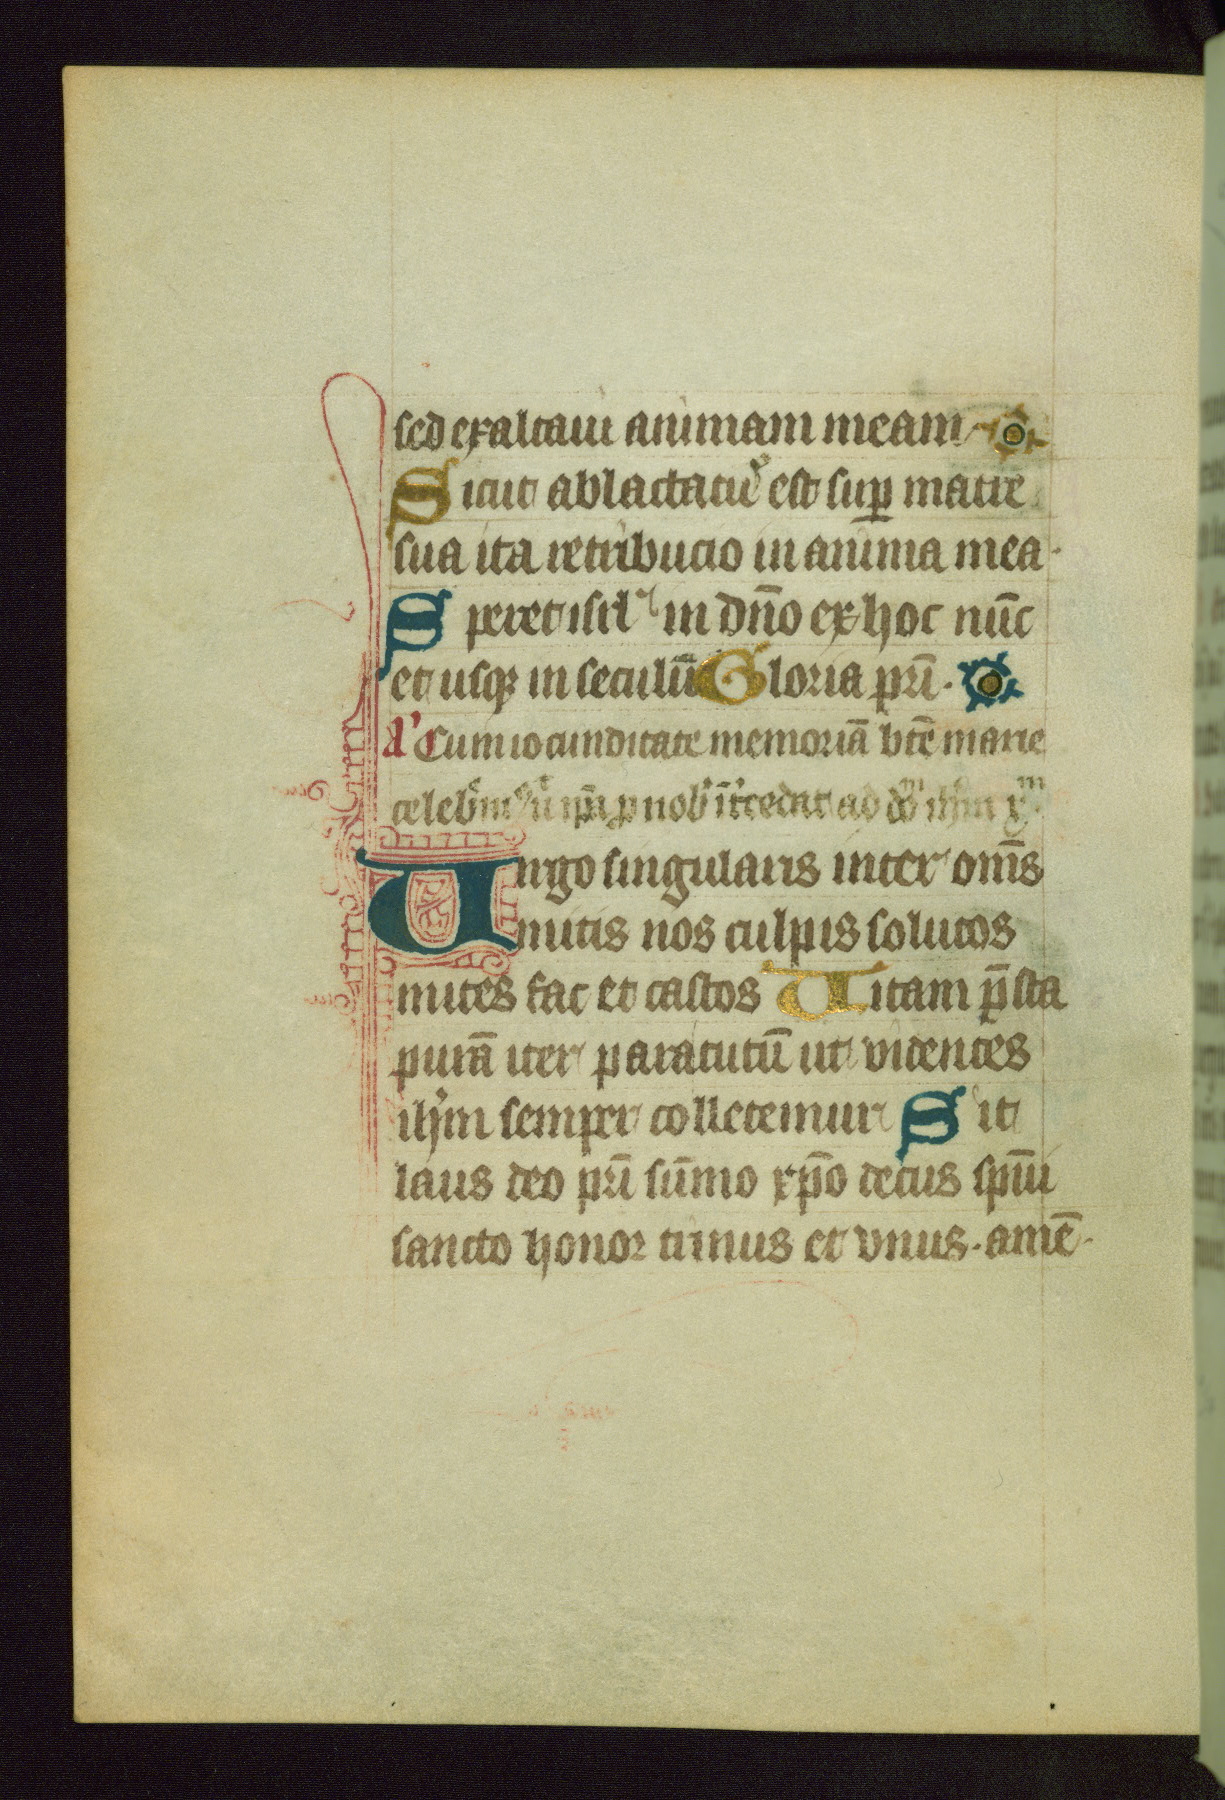 sed exaltaui animam meam
Sicut ablactatꝰ est suꝑ matrē
sua ita retribucio in anima mea·
Speret isrl in dn̄o ex hoc nūc
et usqꝫ in seculū Gloria pr̄i·
a' Cum iocunditate memoriā btē marie
celebrem⁹ ut ip̄a ꝓ nob' īt'cedat ad dn̄m ih̄m xp̄m
Uirgo singularis inter om̄s
mitis nos culpis solutos
mites fac et castos Uitam p̄sta
purā iter para tutū ut videntes
ih̄m semper colletemur Sit
laus deo pr̄i sūmo xp̄o decus spūi
sancto honor trinus et vnus·amē·